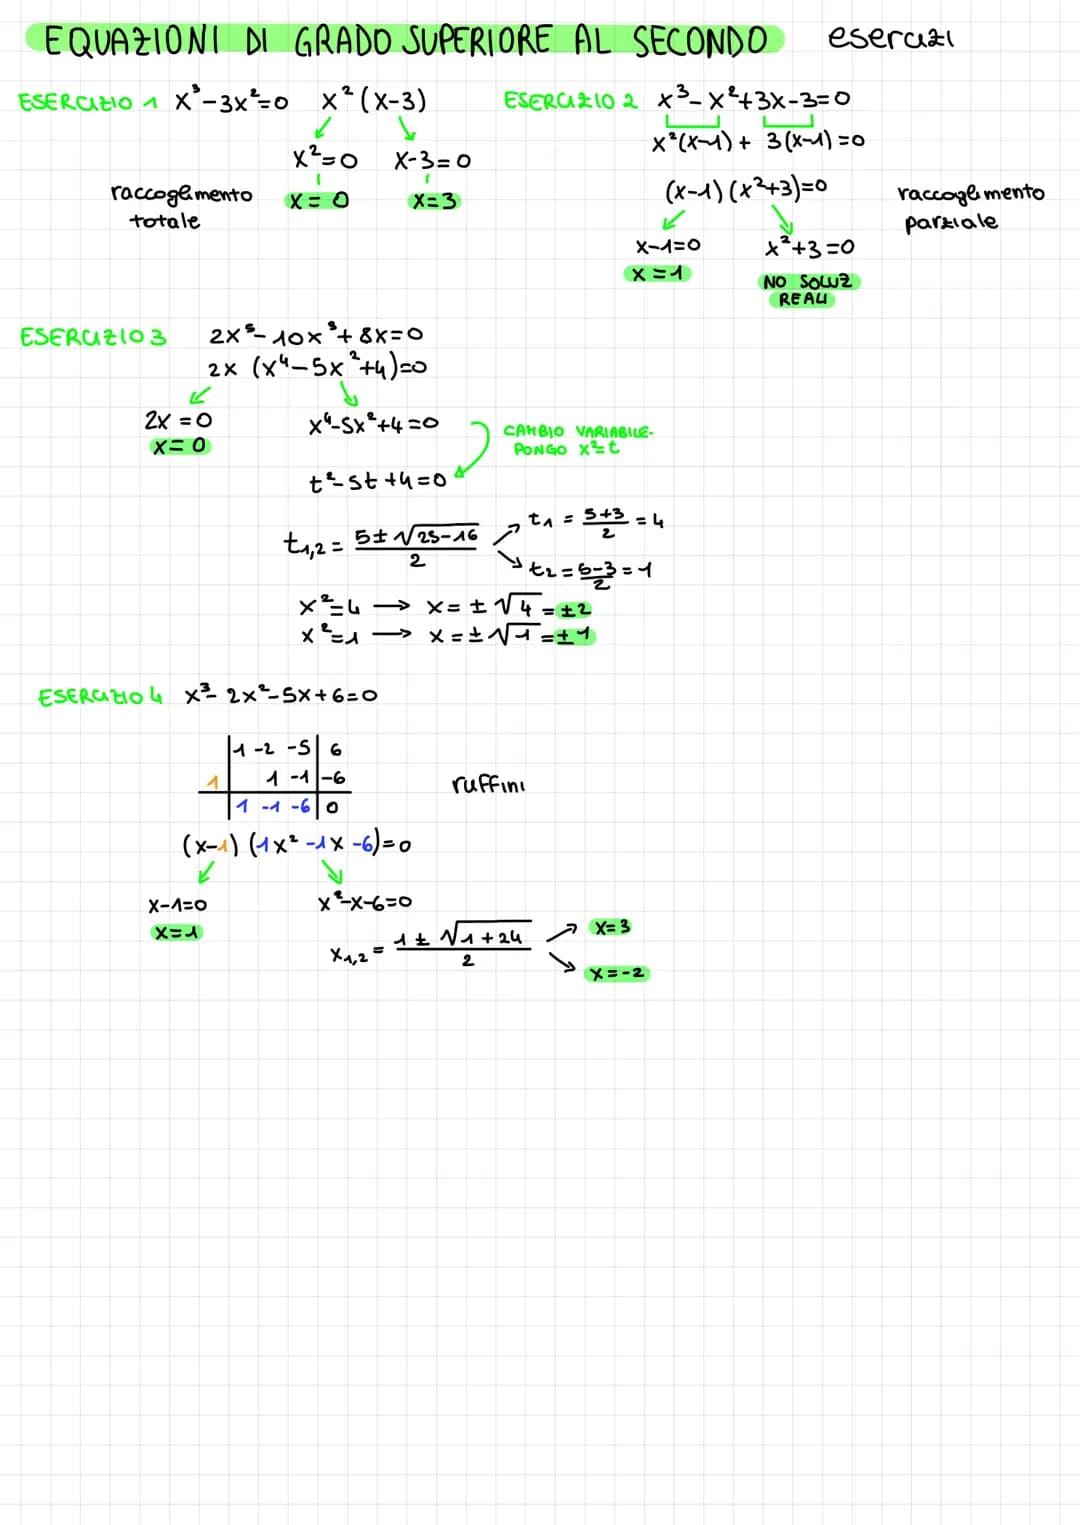 EQUAZIONI DI GRADO SUPERIORE AL SECONDO esercizi
ESERCIZIO 1 x³-3x²=0 x²(x-3)
x²=0 x-3=0
x=0 x=3
raccoglimento
totale
ESERCIZIO 2 x³-x²+3x-3=0
x²(x-1)+ 3(x-1)=0
(x-1)(x²+3)=0
raccoglimento
parziale
x-1=0 x²+3=0
x=1 NO SOLUZ
REALI
ESERCIZIO 3 2x⁵-10x³+8x=0
2x (x⁴-5x²+4)=0
2x=0 x⁴-5x²+4=0
x=0
CAMBIO VARIABILE-
PONGO x²=t
t²-5t+4=0
t1,2 = 5±√25-16 / 2
t1 = 5+3 / 2 = 4
t2 = 5-3 / 2 = 1
x²=4 → x=±√4=±2
x²=1 → x=±√1=±1
ESERCIZIO 4 x³-2x²-5x+6=0
1 -2 -5 6
1 1 -1 -6
1 -1 -6 0
ruffini
(x-1)(1x²-1x-6)=0
x-1=0 x²-x-6=0
x=1
x1,2 = 1±√1+24 / 2
x=3
x=-2